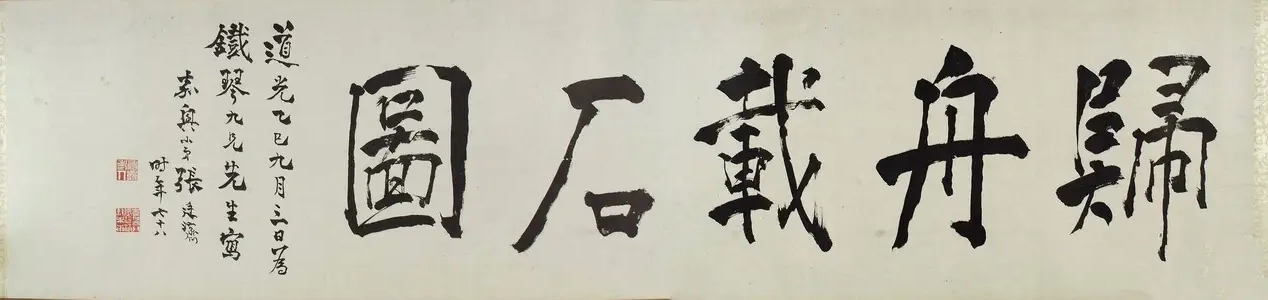 歸舟載石圖
道光乙巳九月三日為
鐵琴九兄先生寫
嘉興小弟張廷濟
時年七十八